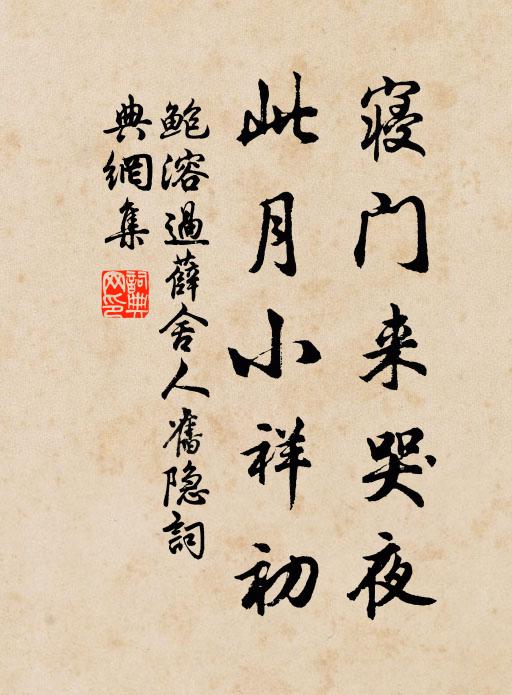 寝门来哭夜
此月小祥初
鲍溶過薛舍人舊隐詞
典網集
詞典網印